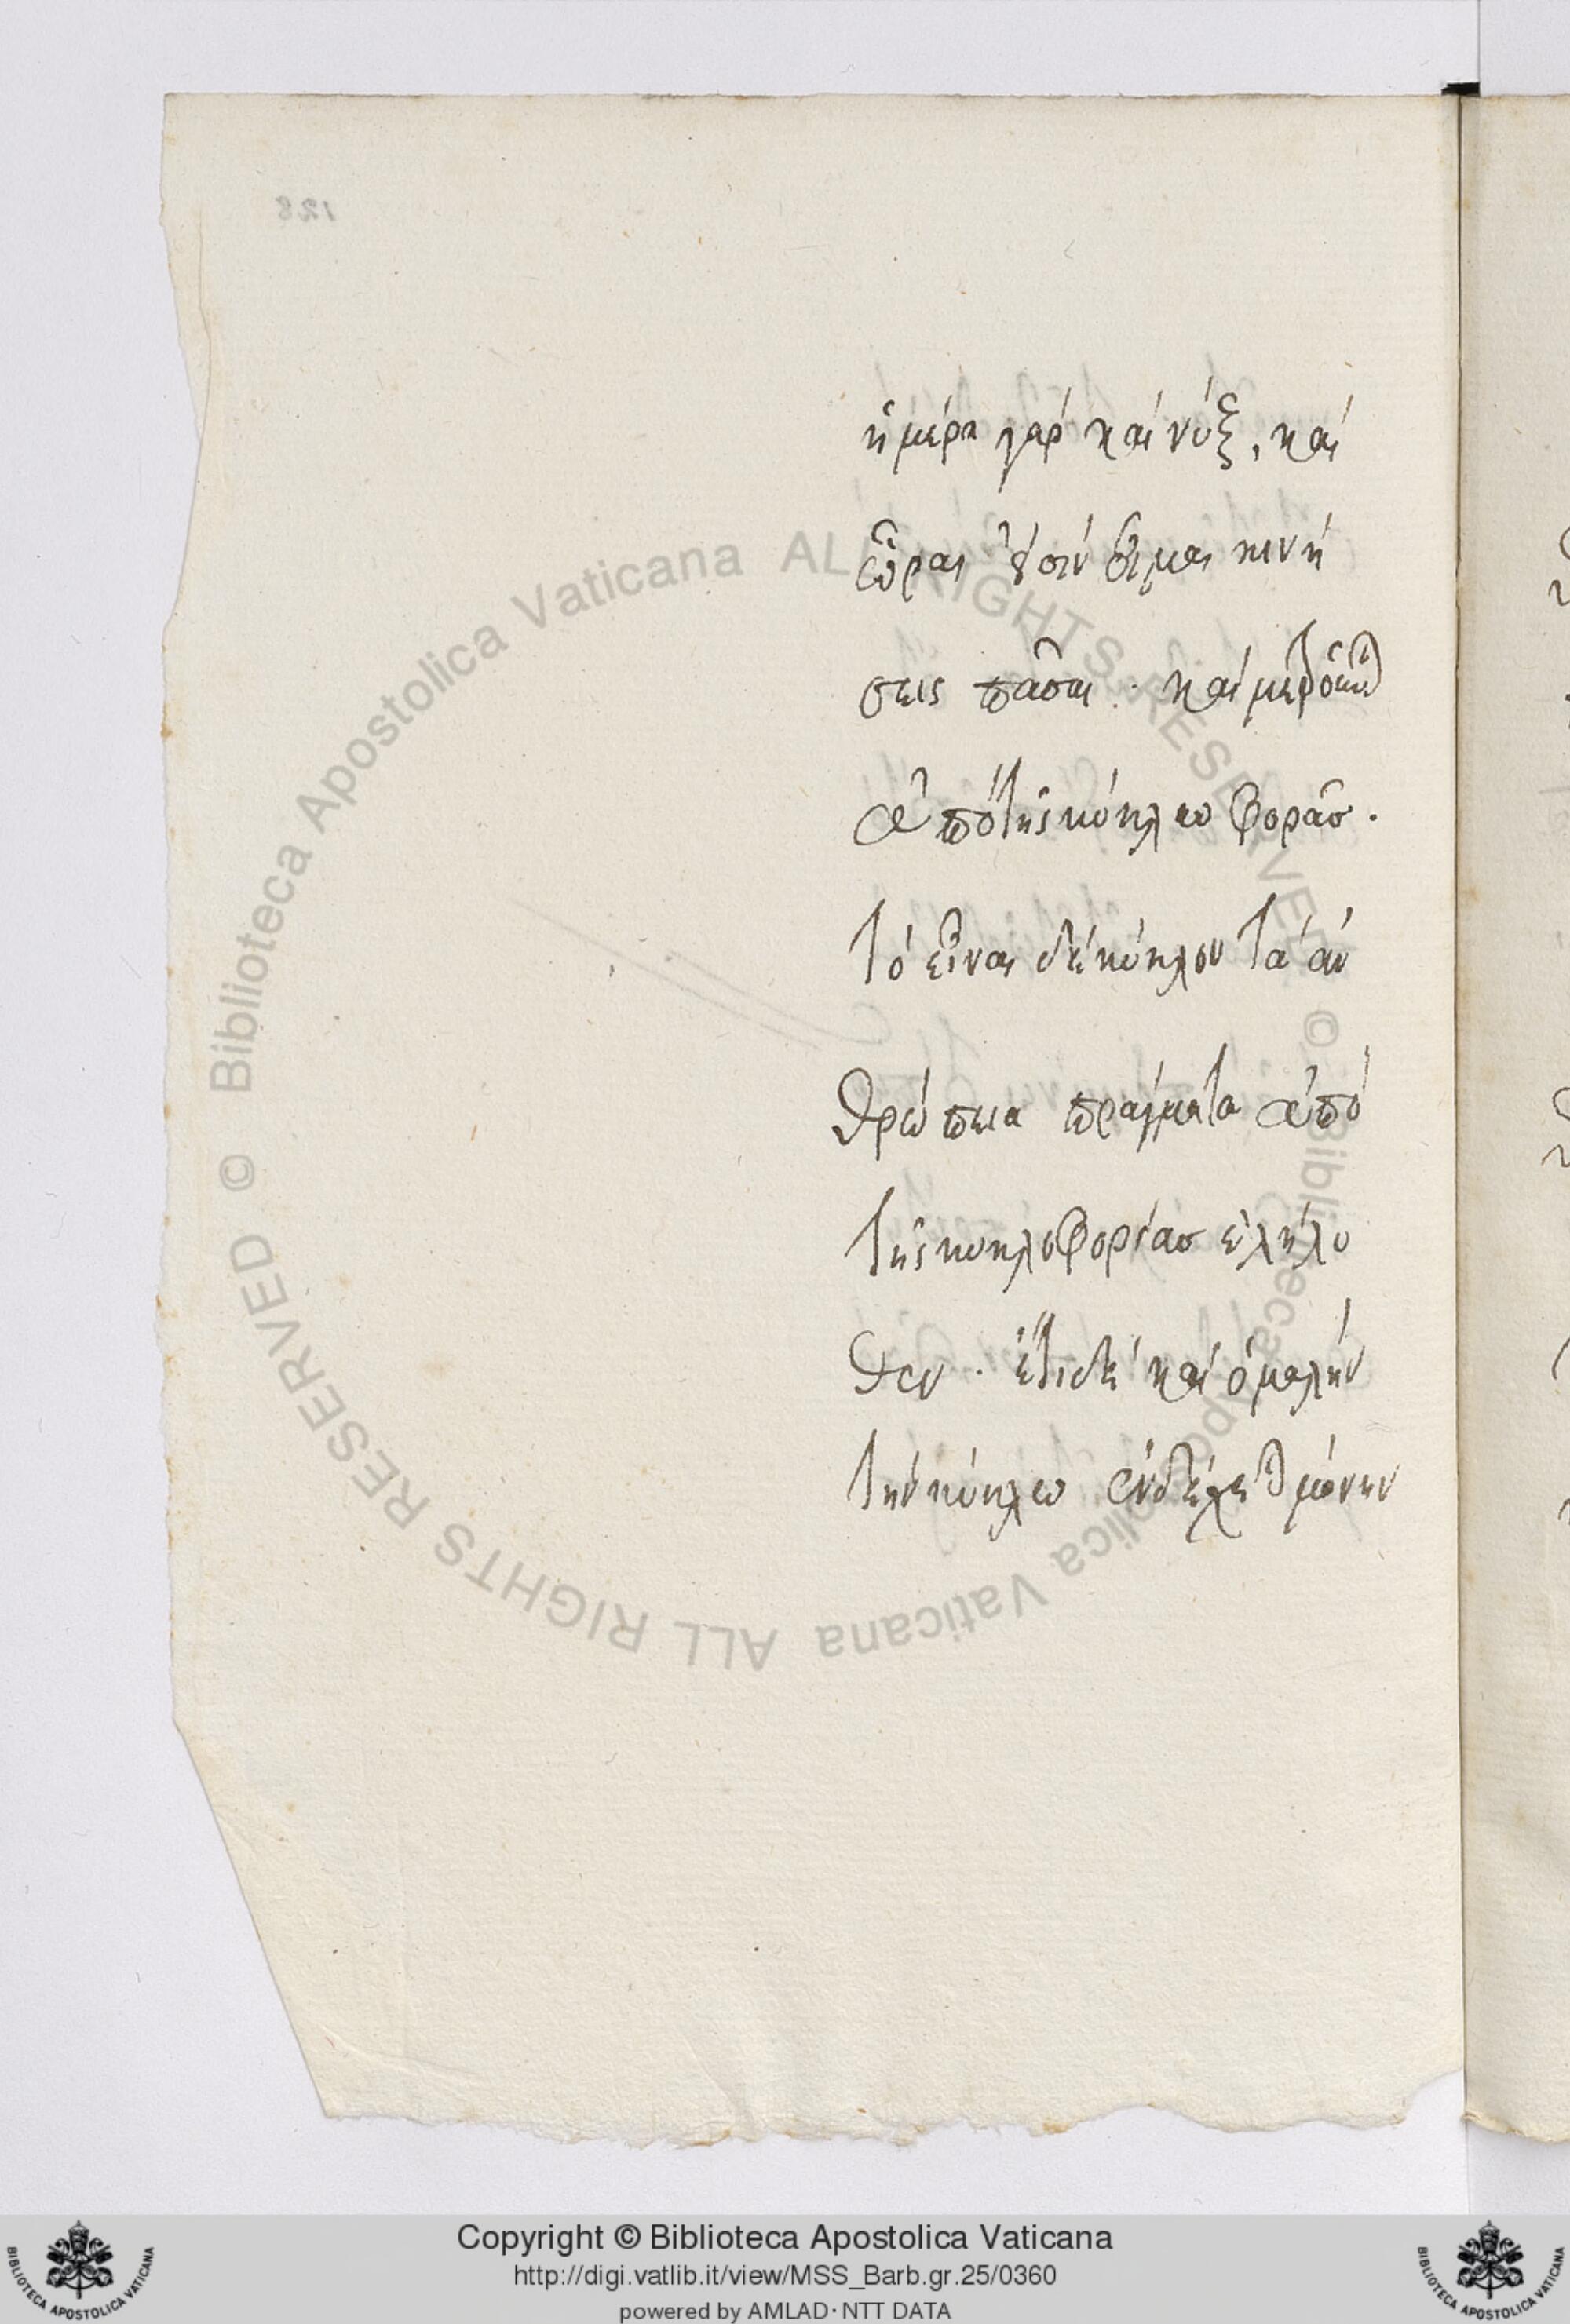 128
ἡμέρα γὰρ καὶ νὺξ, καὶ
ὧραι
σεις πᾶσαι . καὶ
ἀπὸ τῆς κύκλω φορᾶσ .
τὸ εἶναι δὲ κύκλον τὰ ἀν
θρώπεια πράγματα ἀπὸ
τῆς κυκλοφορίασ ἐλήλυ
θεν . ἔτι δὲ καὶ ὁμαλὴν
τὴν κύκλω ἐνδέχεται μόνην
© Biblioteca Apostolica Vaticana ALL RIGHTS RESERVED
© Biblioteca Apostolica Vaticana ALL RIGHTS RESERVED
Copyright © Biblioteca Apostolica Vaticana
http://digi.vatlib.it/view/MSS_Barb.gr.25/0360
powered by AMLAD·NTT DATA
BIBLIOTECA APOSTOLICA VATICANA
BIBLIOTECA APOSTOLICA VATICANA